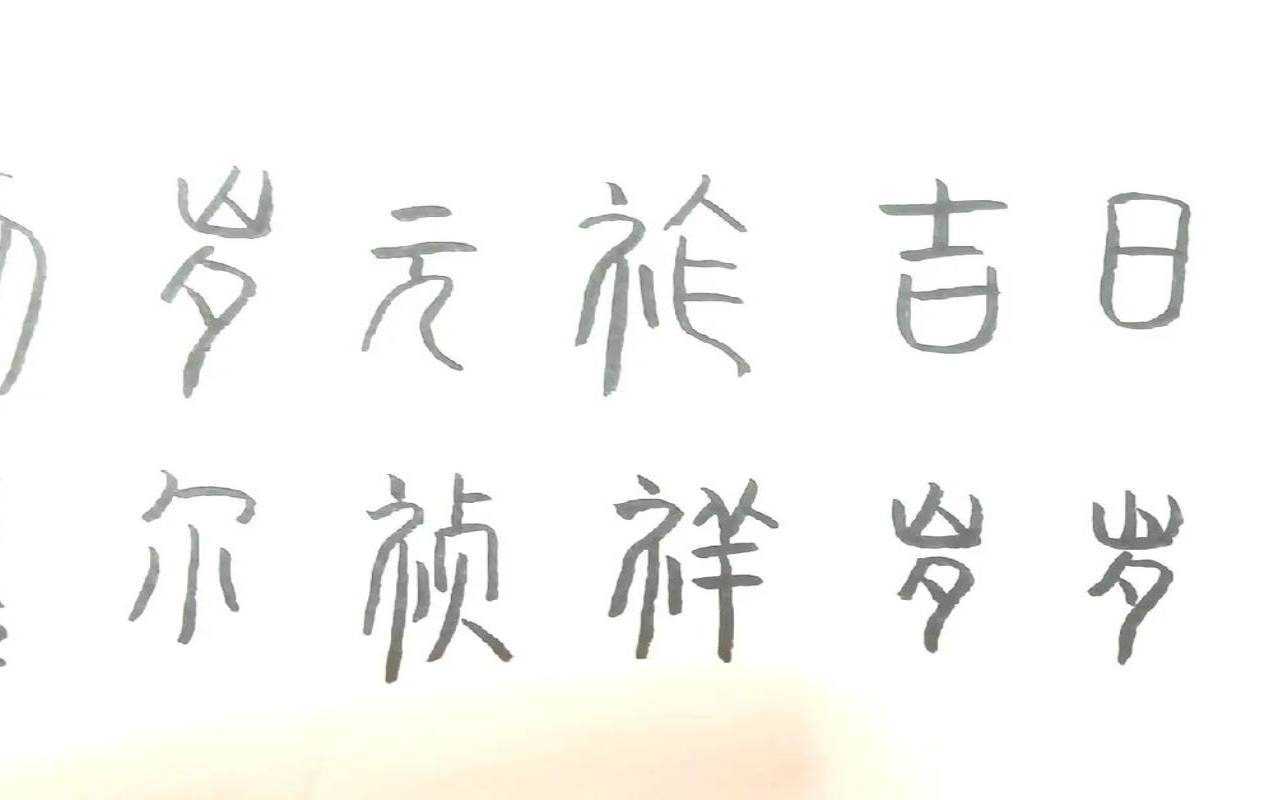 岁元祚吉日
尔祯祥岁岁